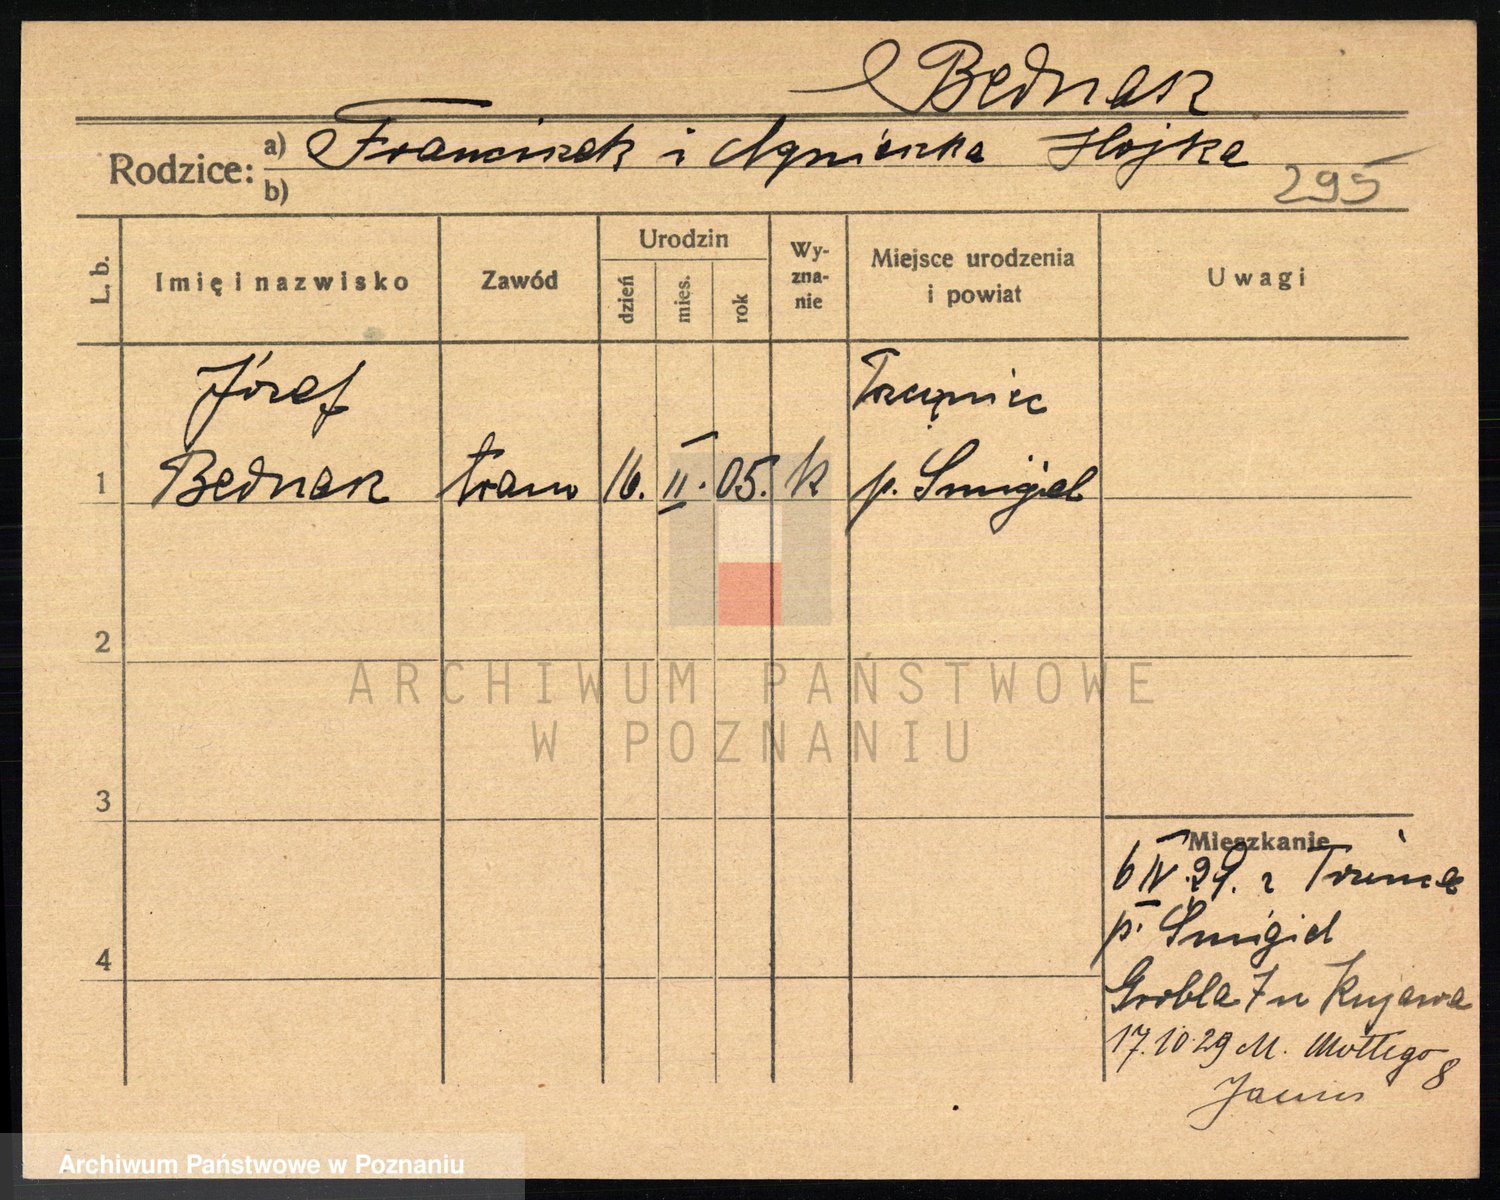 Bednarz
Rodzice: a) Franciszek i Agnieszka Hojka
b)
295
L. b. Imię i nazwisko Zawód Urodzin dzień mies. rok Wy-zna-nie Miejsce urodzenia i powiat Uwagi
Józef
1 Bednarz tram 16. II. 05. k p. Śmigiel
2
3
4
Mieszkanie
6 IV. 29. z
p. Śmigiel
Grobla 7 u Kujawa
17.10.29 M. Mottego 8
ARCHIWUM PAŃSTWOWE
W POZNANIU
Archiwum Państwowe w Poznaniu